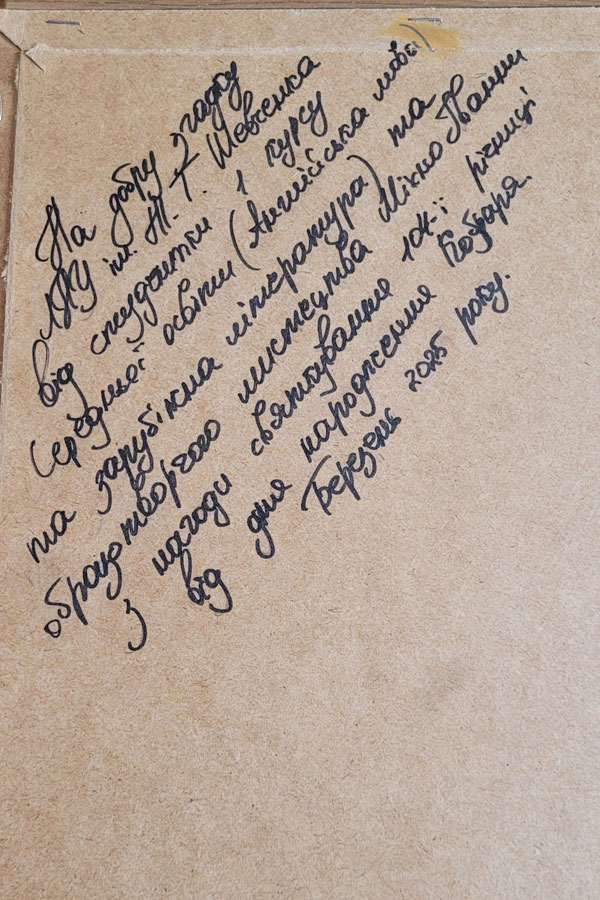 На добру згадку
ЛНУ ім. Т. Г. Шевченка
від студентки 1 курсу
Середньої освіти (Англійська мова)
та зарубіжна література) та
образотворчого мистецтва Міхно Іванни
з нагоди святкування річниці
від дня народження Кобзаря.
Березень 2025 року.